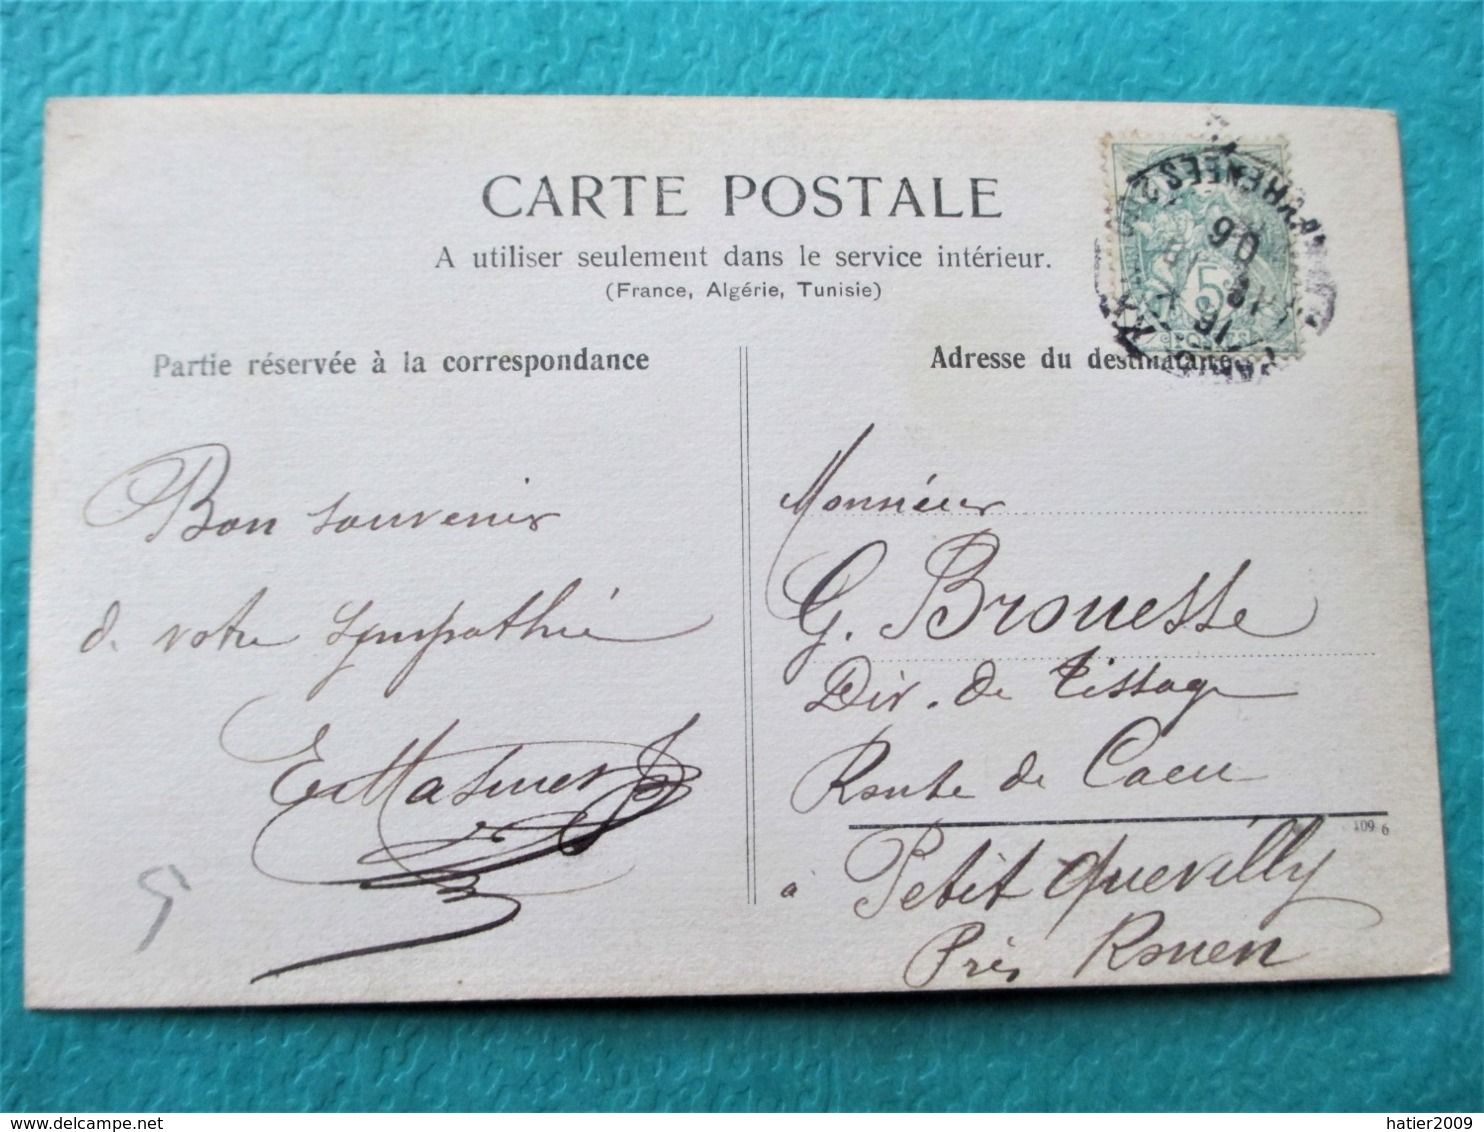 CARTE POSTALE
A utiliser seulement dans le service intérieur.
(France, Algérie, Tunisie)
Partie réservée à la correspondance
Adresse du destinataire
Bon souvenir
d. votre sympathie
Monsieur
G. Brouesse
Dir. de tissage
Route de Caen
à Petit Quevilly
Près Rouen
109 6
5
06
16
5
delcampe.net
hatier2009